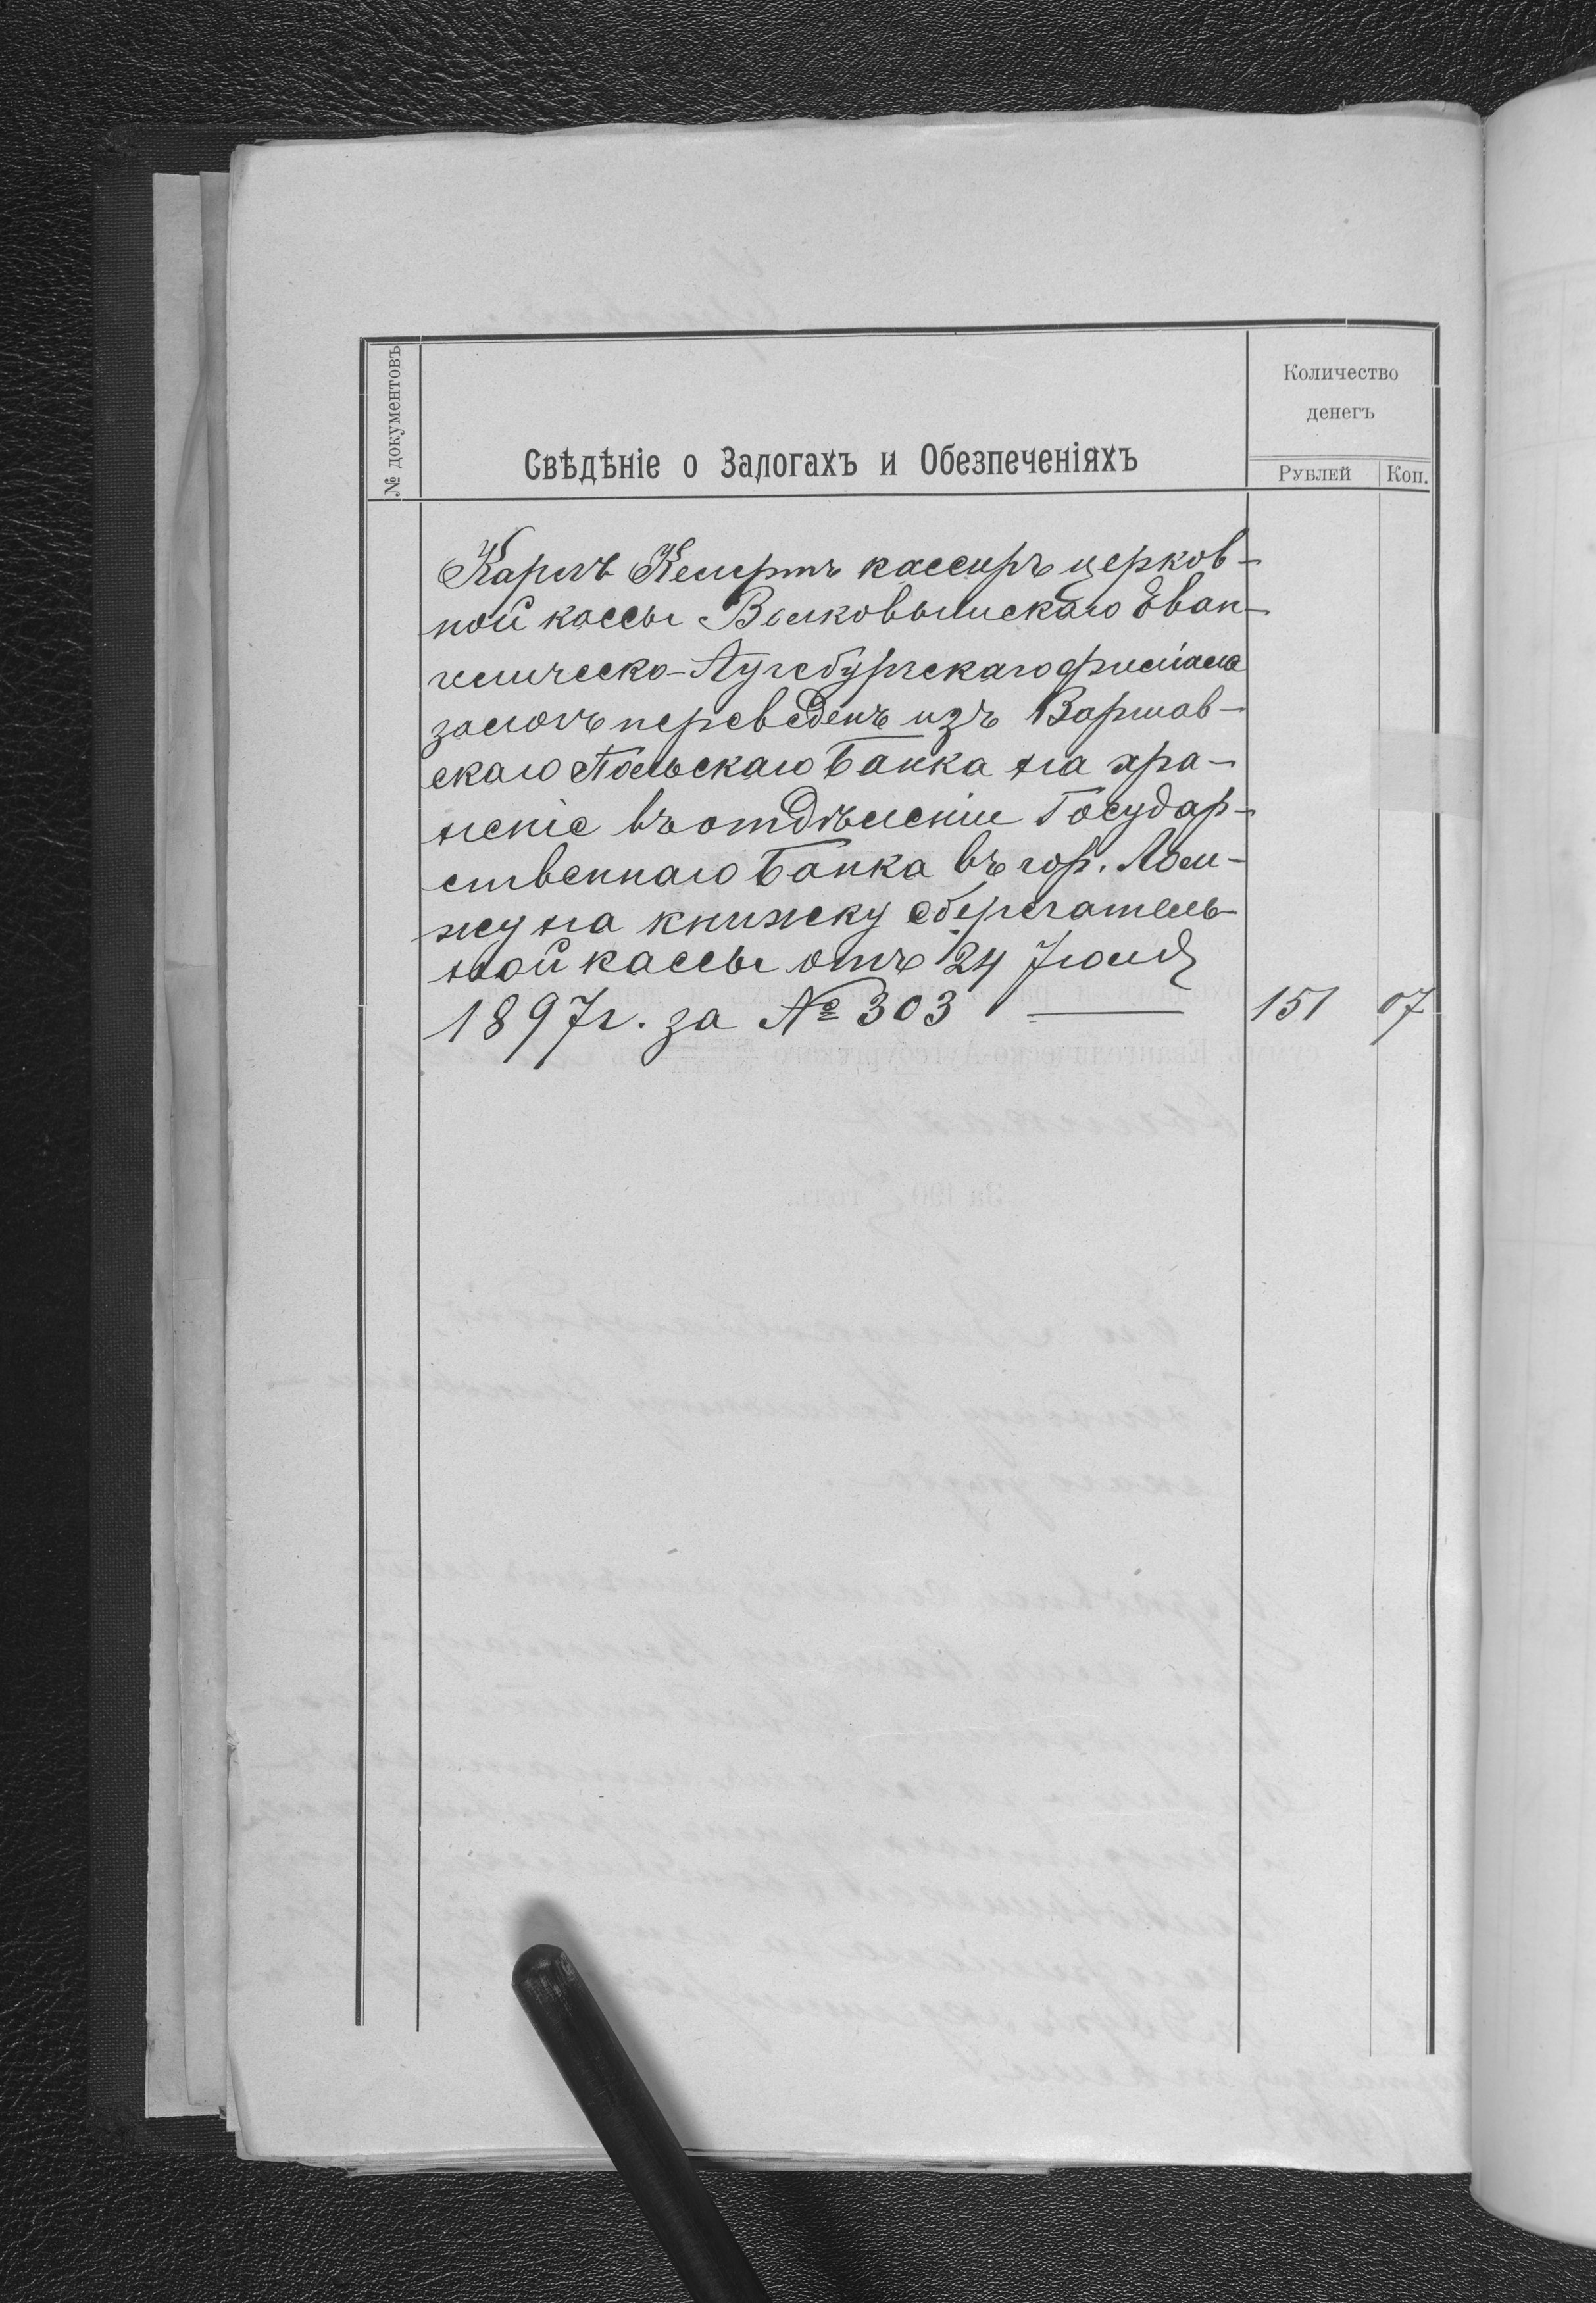 № документовъ
Свѣдѣніе о Залогахъ и Обезпеченіяхъ
Количество
денегъ
Рублей Коп.
Карлъ Келертъ кассиръ церков-
ной кассы Волковышскаго Еван-
гелическо-Аугсбургскаго филіала
залогъ переведенъ изъ Варшав-
скаго Польскаго Банка на хра-
неніе въ отдѣленіи Государ-
ственнаго Банка въ гор. Лом-
жу на книжку сберегатель-
ной кассы отъ 24 Іюля
1897 г. за № 303 — 151 07